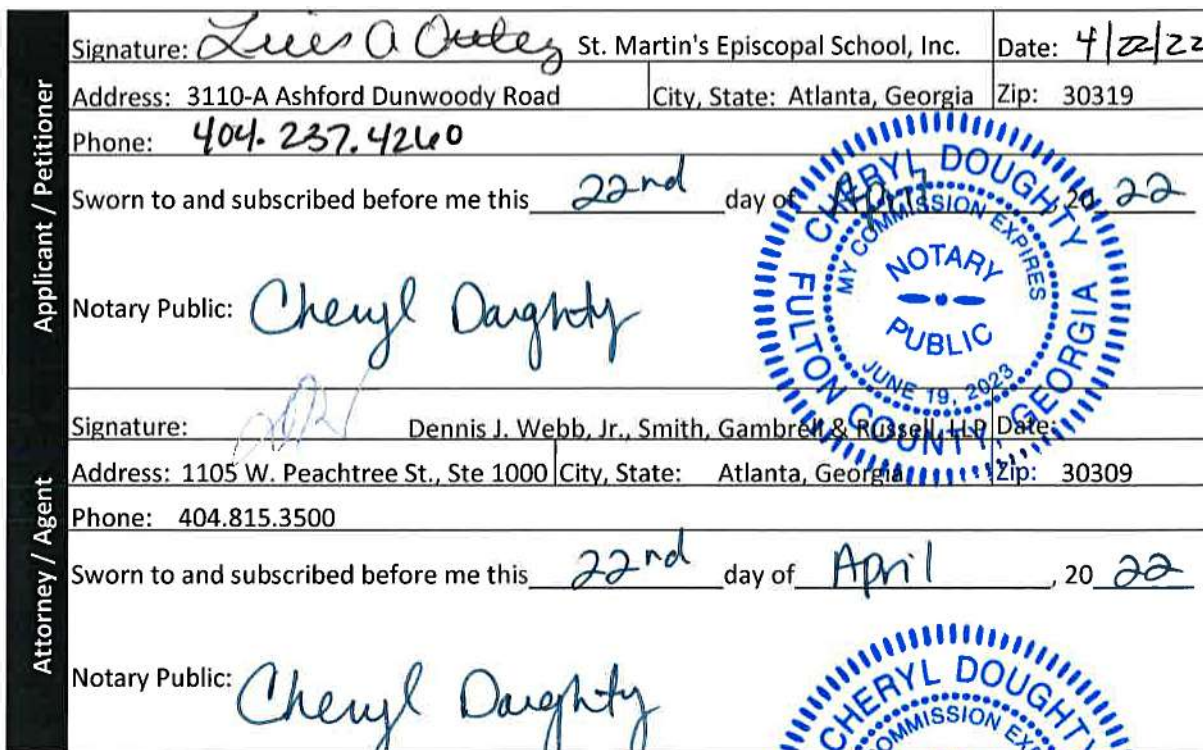 Applicant / Petitioner
Signature: Luis A Ortez St. Martin's Episcopal School, Inc. Date: 4/22/22
Address: 3110-A Ashford Dunwoody Road City, State: Atlanta, Georgia Zip: 30319
Phone: 404.237.4260
Sworn to and subscribed before me this 22nd day of April, 20 22
Notary Public: Cheryl Doughty
CHERYL DOUGHTY
MY COMMISSION EXPIRES
NOTARY
PUBLIC
JUNE 19, 2023
FULTON COUNTY, GEORGIA
Attorney / Agent
Signature: Dennis J. Webb, Jr., Smith, Gambrell & Russell, LLP Date:
Address: 1105 W. Peachtree St., Ste 1000 City, State: Atlanta, Georgia Zip: 30309
Phone: 404.815.3500
Sworn to and subscribed before me this 22nd day of April, 20 22
Notary Public: Cheryl Doughty
CHERYL DOUGHT
COMMISSION EX